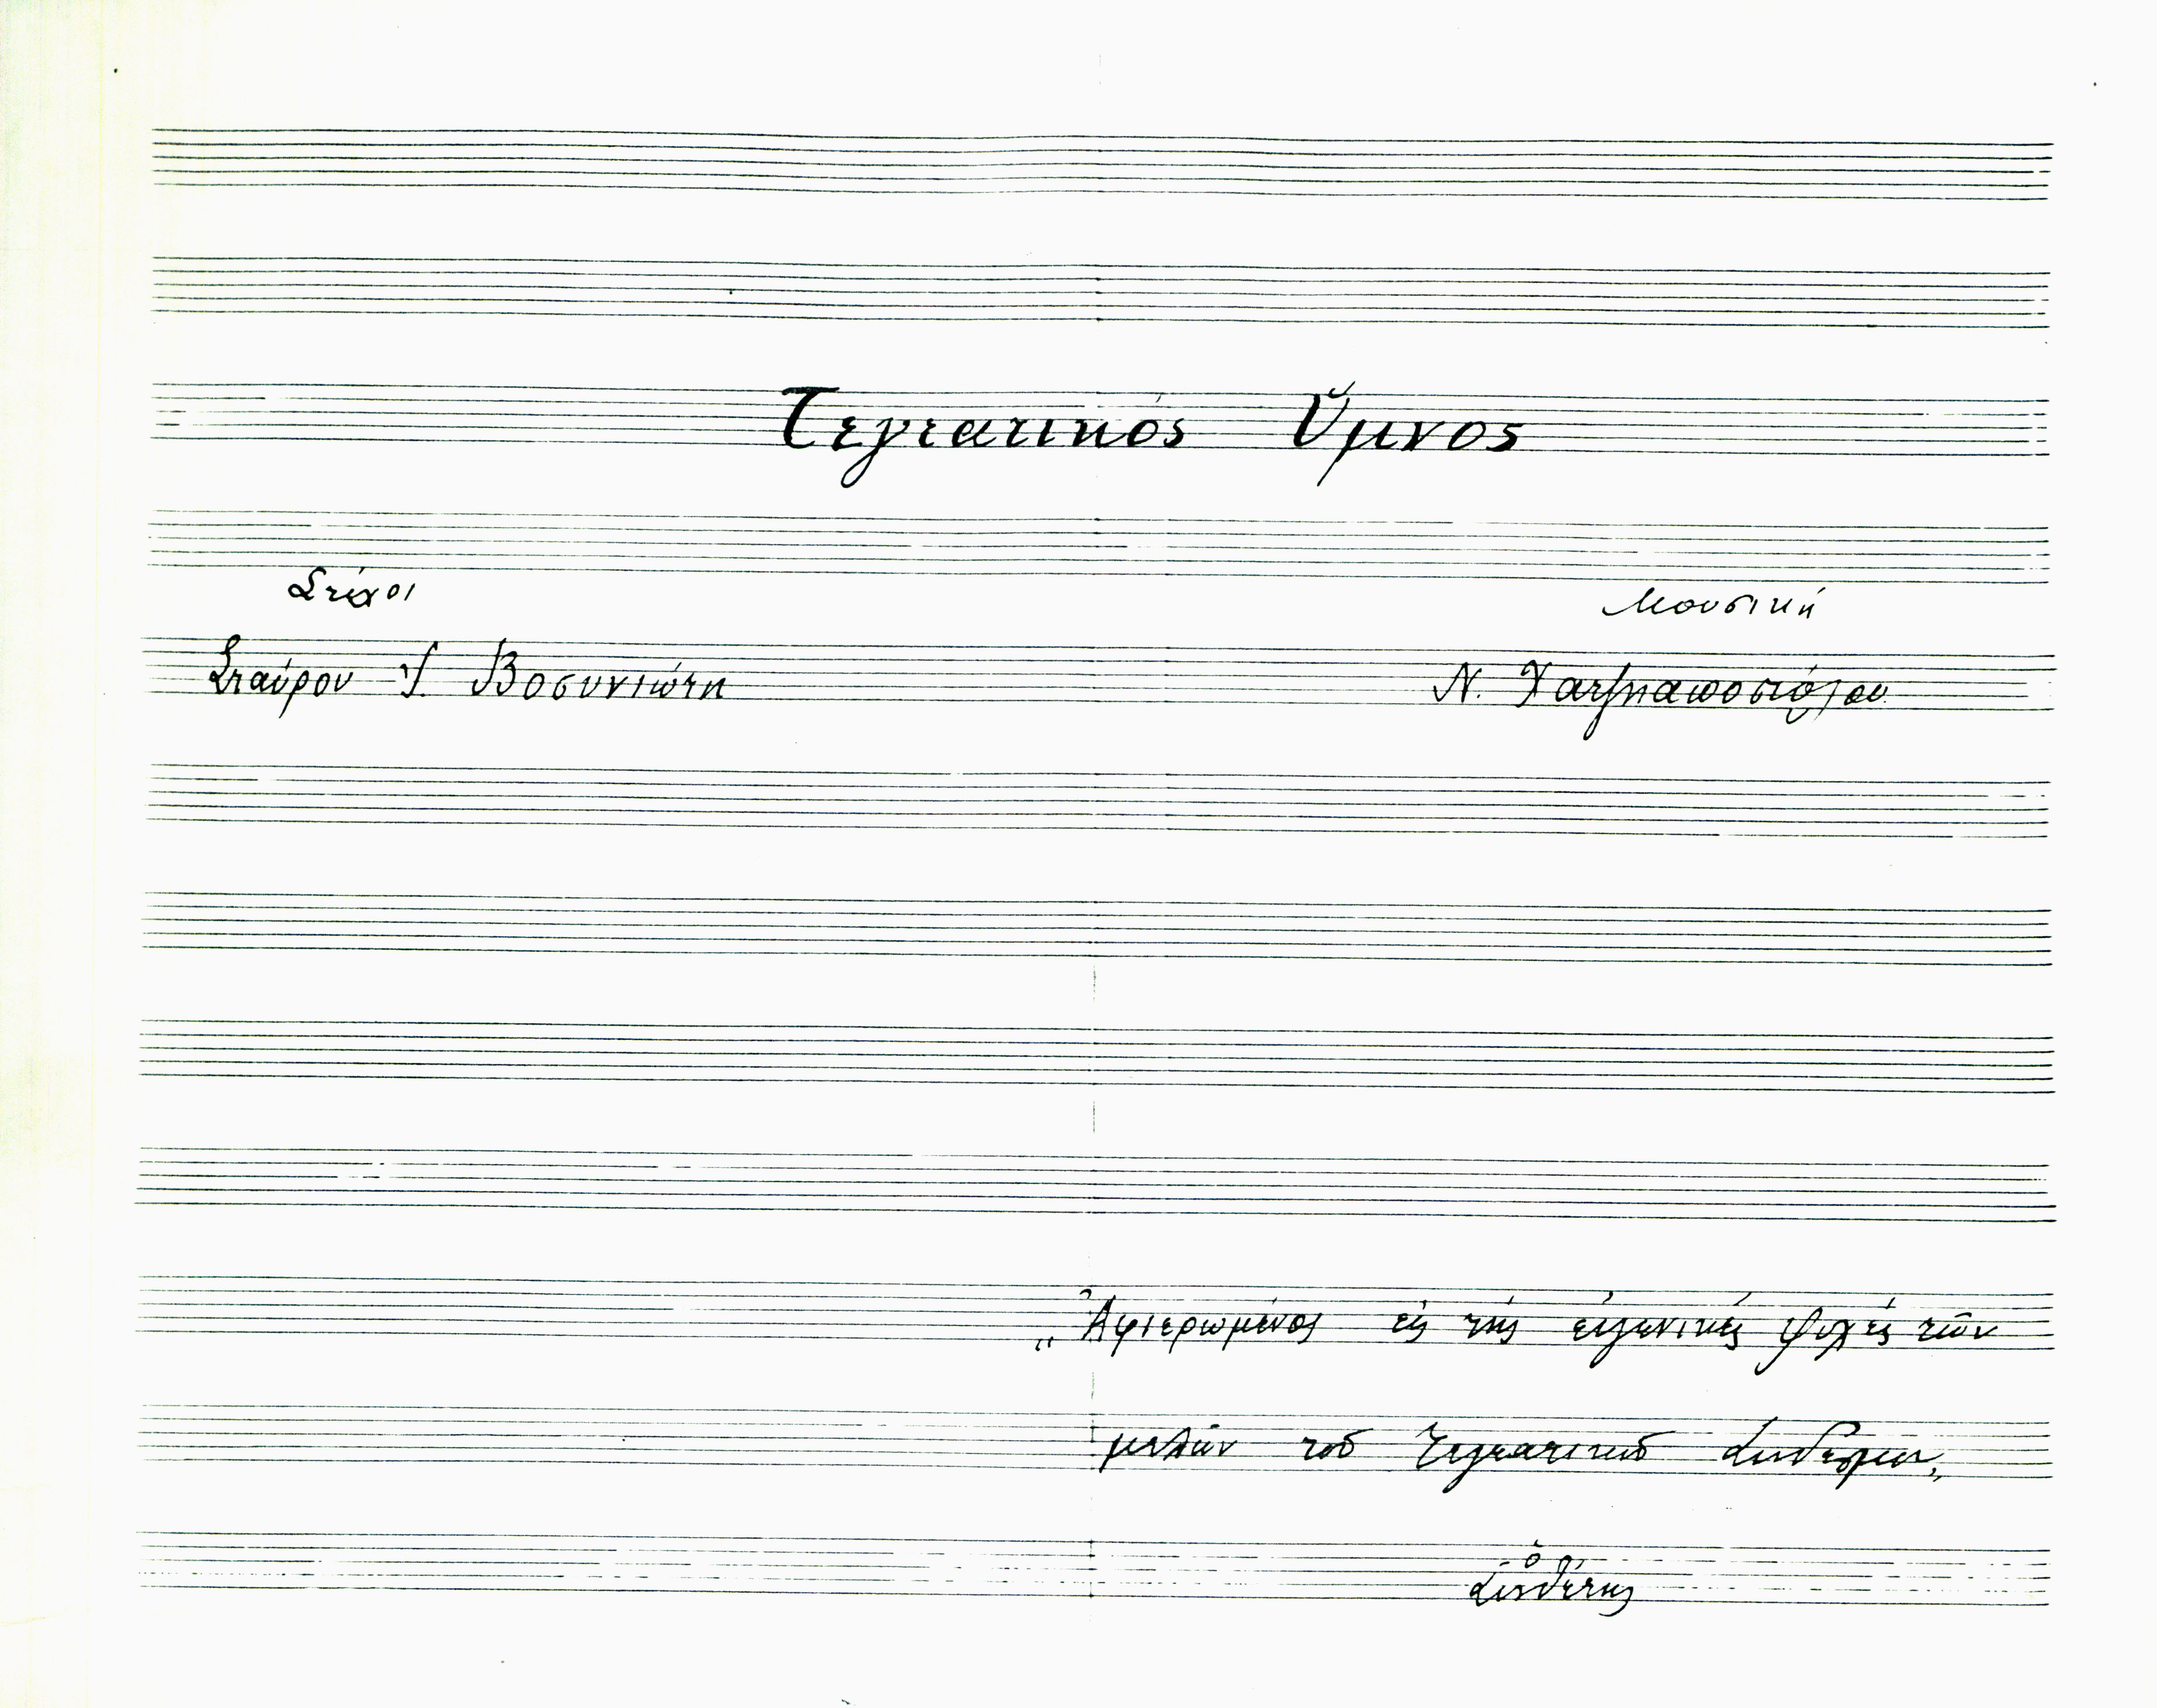 Τεγεατικός Ὕμνος
Στίχοι
Μουσική
Σταύρου Ι. Βοσυνιώτη
Ν. Χατζηαποστόλου
„Ἀφιερωμένος εἰς τὰς εὐγενικὲς ψυχὲς τῶν
μελῶν τοῦ Τεγεατικοῦ Συνδέσμου„
ὁ
Συνθέτης